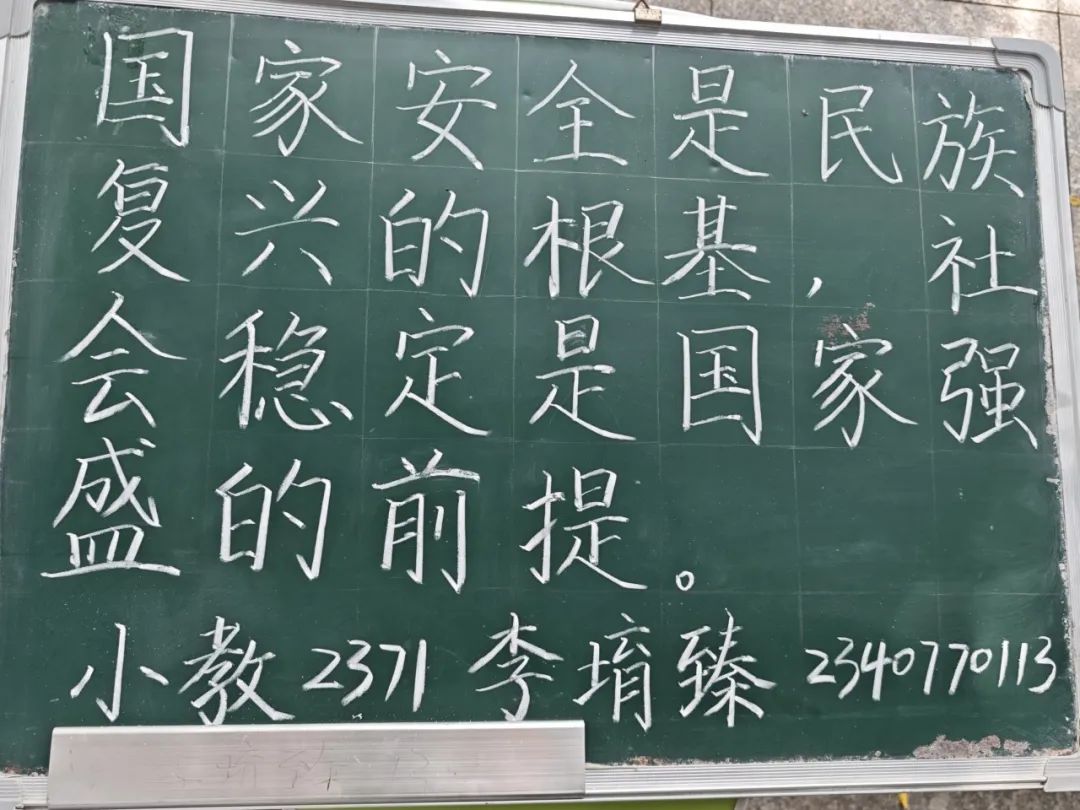 国家安全是民族
复兴的根基，社
会稳定是国家强
盛的前提。
小教2371 李堉臻 2340770113